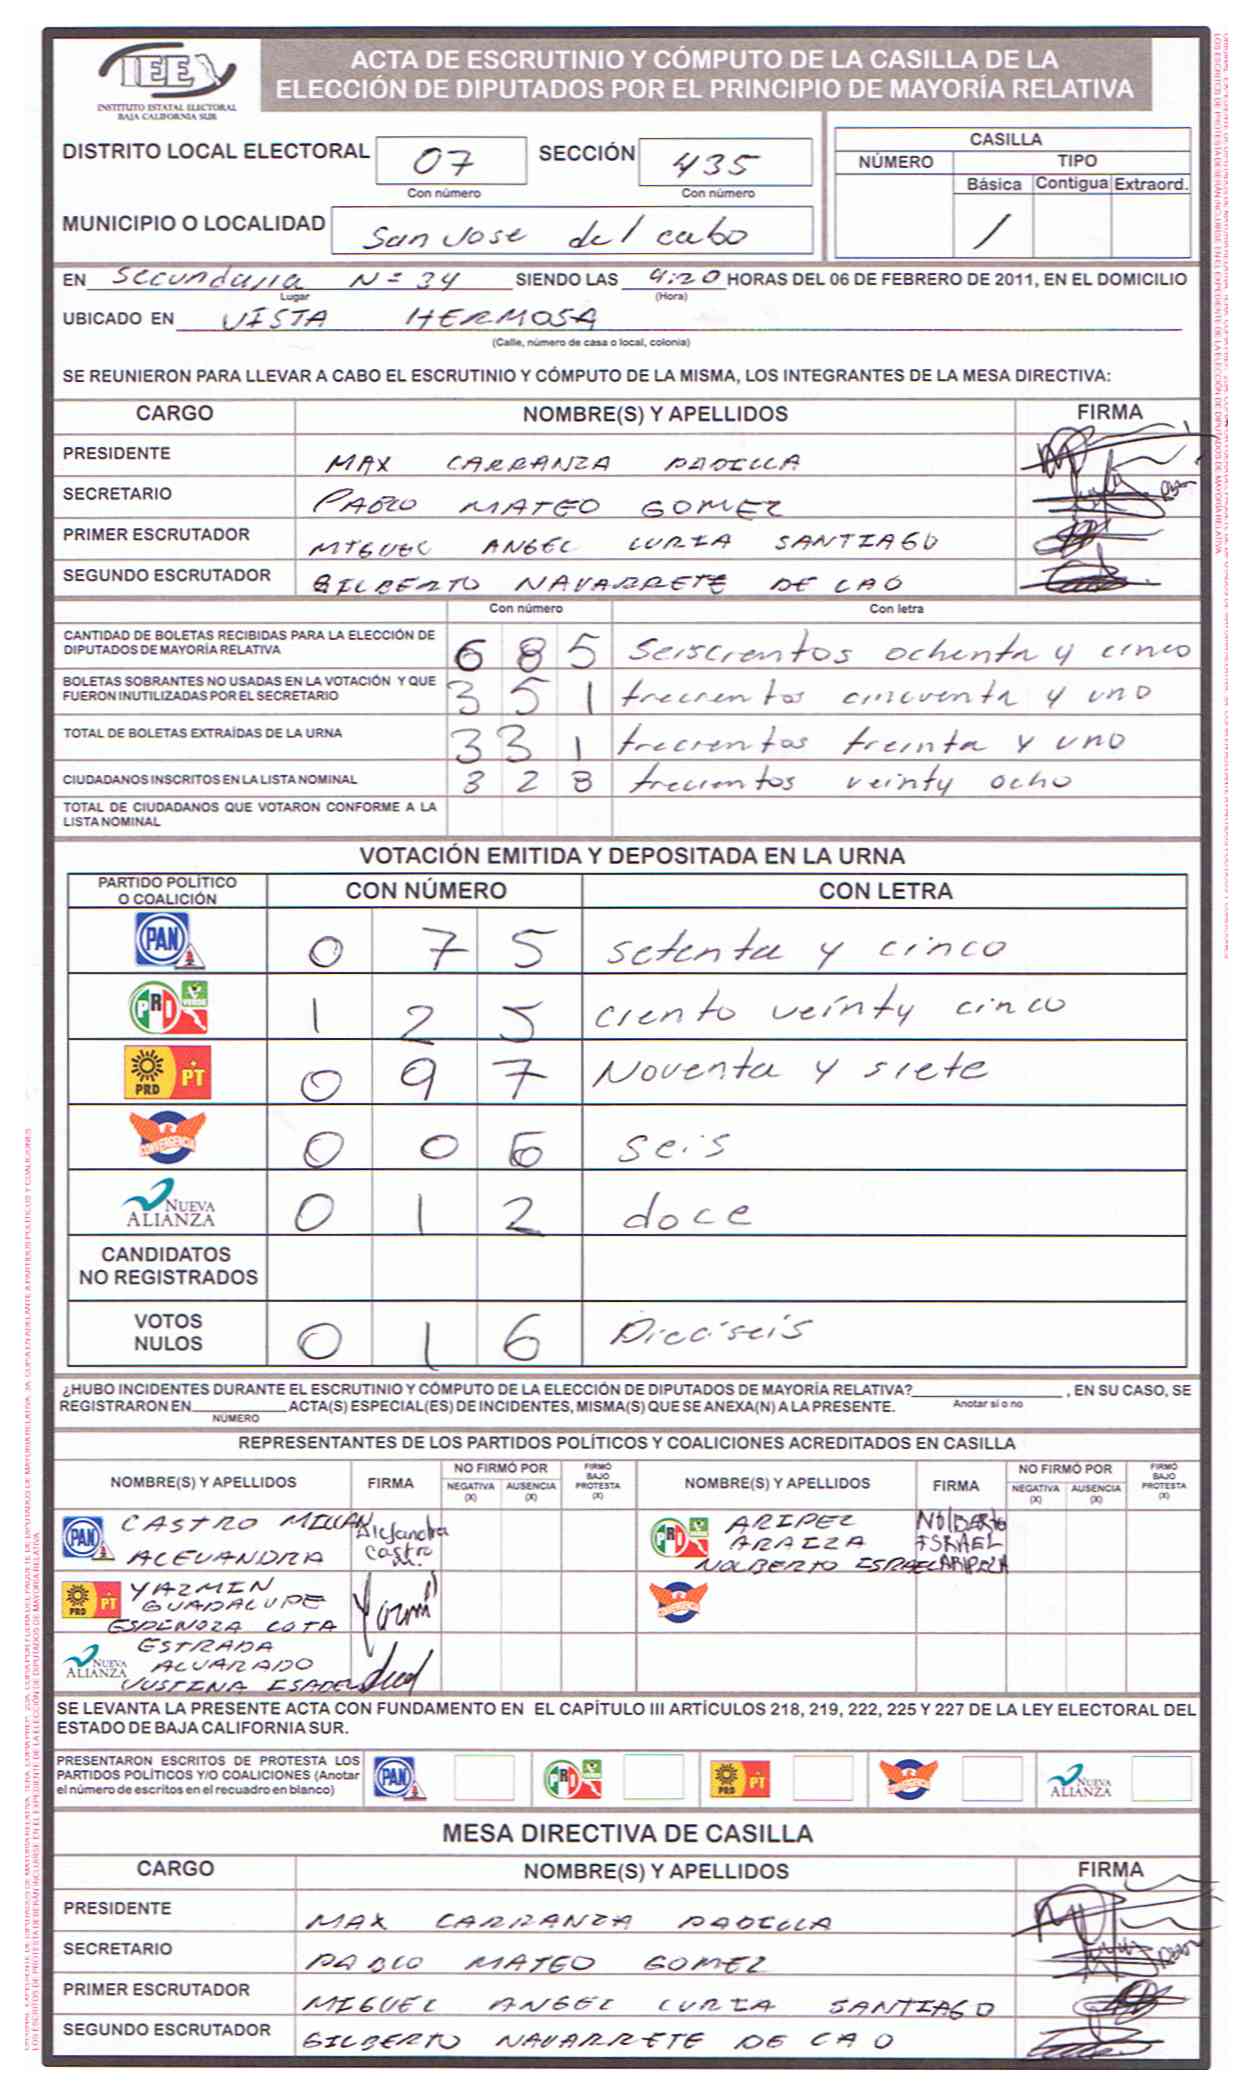 IEE
INSTITUTO ESTATAL ELECTORAL
BAJA CALIFORNIA SUR
ACTA DE ESCRUTINIO Y CÓMPUTO DE LA CASILLA DE LA
ELECCIÓN DE DIPUTADOS POR EL PRINCIPIO DE MAYORÍA RELATIVA
DISTRITO LOCAL ELECTORAL 07 SECCIÓN 435
Con número Con número
CASILLA
NÚMERO TIPO
Básica Contigua Extraord.
/
MUNICIPIO O LOCALIDAD San Jose del cabo
EN Secundaria Nº 34 SIENDO LAS 4:20 HORAS DEL 06 DE FEBRERO DE 2011, EN EL DOMICILIO
Lugar (Hora)
UBICADO EN VISTA HERMOSA
(Calle, número de casa o local, colonia)
SE REUNIERON PARA LLEVAR A CABO EL ESCRUTINIO Y CÓMPUTO DE LA MISMA, LOS INTEGRANTES DE LA MESA DIRECTIVA:
CARGO NOMBRE(S) Y APELLIDOS FIRMA
PRESIDENTE MAX CARRANZA PADILLA
SECRETARIO PABLO MATEO GOMEZ
PRIMER ESCRUTADOR MIGUEL ANGEL LURIA SANTIAGO
SEGUNDO ESCRUTADOR GILBERTO NAVARRETE DE CAO
Con número Con letra
CANTIDAD DE BOLETAS RECIBIDAS PARA LA ELECCIÓN DE
DIPUTADOS DE MAYORÍA RELATIVA 6 8 5 Seiscientos ochenta y cinco
BOLETAS SOBRANTES NO USADAS EN LA VOTACIÓN Y QUE
FUERON INUTILIZADAS POR EL SECRETARIO 3 5 1 trecientos cincuenta y uno
TOTAL DE BOLETAS EXTRAÍDAS DE LA URNA 3 3 1 trecientos treinta y uno
CIUDADANOS INSCRITOS EN LA LISTA NOMINAL 3 2 8 trecientos veinty ocho
TOTAL DE CIUDADANOS QUE VOTARON CONFORME A LA
LISTA NOMINAL
VOTACIÓN EMITIDA Y DEPOSITADA EN LA URNA
PARTIDO POLÍTICO
O COALICIÓN CON NÚMERO CON LETRA
PAN 0 7 5 setenta y cinco
PRI VERDE 1 2 5 ciento veinty cinco
PRD PT 0 9 7 Noventa y siete
CONVERGENCIA 0 0 6 seis
NUEVA ALIANZA 0 1 2 doce
CANDIDATOS
NO REGISTRADOS
VOTOS
NULOS 0 1 6 Dieciseis
¿HUBO INCIDENTES DURANTE EL ESCRUTINIO Y CÓMPUTO DE LA ELECCIÓN DE DIPUTADOS DE MAYORÍA RELATIVA? , EN SU CASO, SE
Anotar sí o no
REGISTRARON EN ACTA(S) ESPECIAL(ES) DE INCIDENTES, MISMA(S) QUE SE ANEXA(N) A LA PRESENTE.
NÚMERO
REPRESENTANTES DE LOS PARTIDOS POLÍTICOS Y COALICIONES ACREDITADOS EN CASILLA
NOMBRE(S) Y APELLIDOS FIRMA NO FIRMÓ POR NEGATIVA (X) AUSENCIA (X) FIRMÓ BAJO PROTESTA (X) NOMBRE(S) Y APELLIDOS FIRMA NO FIRMÓ POR NEGATIVA (X) AUSENCIA (X) FIRMÓ BAJO PROTESTA (X)
PAN CASTRO MILLAN
ALEJANDRA
Alejandra
Castro
M.
PRI VERDE ARIPEZ
ARAIZA
NOLBERTO ISRAEL
NOLBERTO
ISRAEL
ARIPEZ A
PRD PT YAZMIN
GUADALUPE
ESPINOZA COTA
Yazmi
CONVERGENCIA
NUEVA ALIANZA ESTRADA
ALVARADO
JUSTINA ISABEL
SE LEVANTA LA PRESENTE ACTA CON FUNDAMENTO EN EL CAPÍTULO III ARTÍCULOS 218, 219, 222, 225 Y 227 DE LA LEY ELECTORAL DEL
ESTADO DE BAJA CALIFORNIA SUR.
PRESENTARON ESCRITOS DE PROTESTA LOS
PARTIDOS POLÍTICOS Y/O COALICIONES (Anotar
el número de escritos en el recuadro en blanco)
PAN PRI VERDE PRD PT CONVERGENCIA NUEVA ALIANZA
MESA DIRECTIVA DE CASILLA
CARGO NOMBRE(S) Y APELLIDOS FIRMA
PRESIDENTE MAX CARRANZA PADILLA
SECRETARIO PABLO MATEO GOMEZ
PRIMER ESCRUTADOR MIGUEL ANGEL LURIA SANTIAGO
SEGUNDO ESCRUTADOR GILBERTO NAVARRETE DE CAO